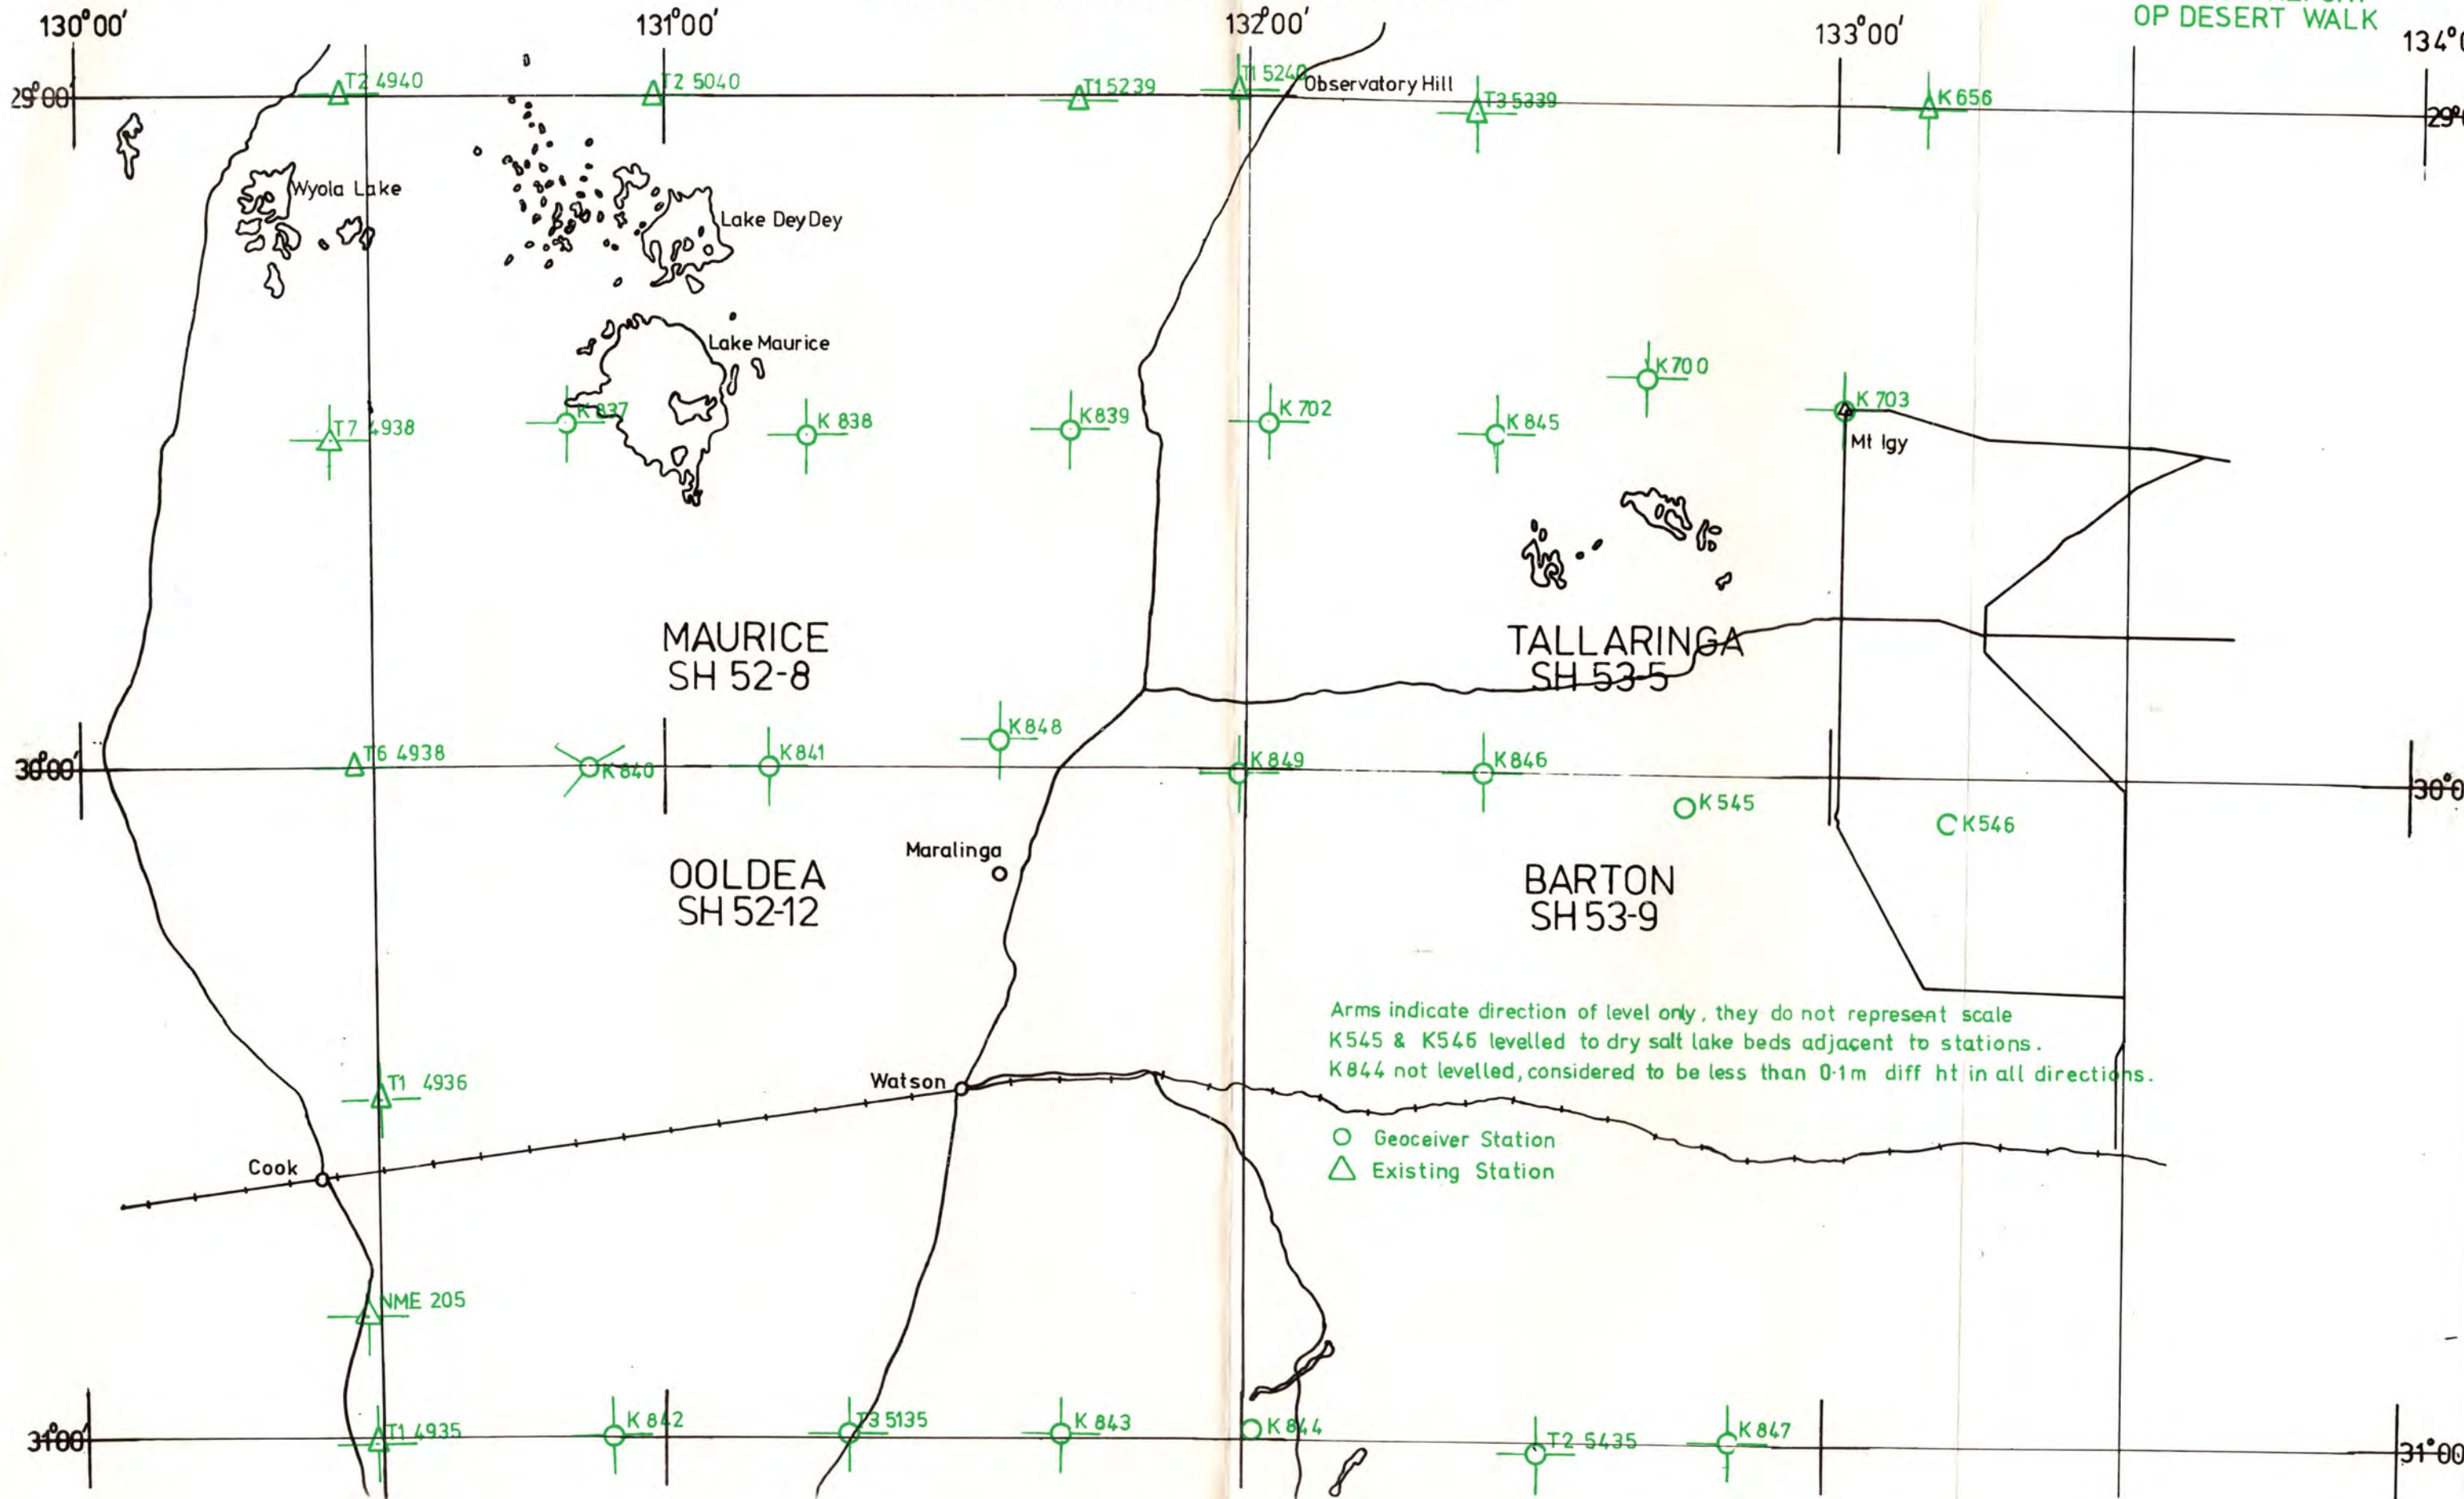 OP DESERT WALK
130°00'
131°00'
132°00'
133°00'
29°00'
T2 4940
T2 5040
T1 5239
T1 5240
Observatory Hill
T3 5339
K 656
Wyola Lake
Lake Dey Dey
Lake Maurice
K 700
T7 4938
K 837
K 838
K 839
K 702
K 845
K 703
Mt Igy
MAURICE
SH 52-8
TALLARINGA
SH 53-5
30°00'
T6 4938
K 840
K 841
K 848
K 849
K 846
K 545
K 546
Maralinga
OOLDEA
SH 52-12
BARTON
SH 53-9
Arms indicate direction of level only, they do not represent scale
K545 & K546 levelled to dry salt lake beds adjacent to stations.
K844 not levelled, considered to be less than 0·1m diff ht in all directions.
T1 4936
Watson
Cook
Geoceiver Station
Existing Station
NME 205
31°00'
T1 4935
K 842
T3 5135
K 843
K 844
T2 5435
K 847
31°00